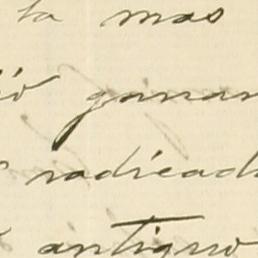 la mas
ió ganan
radicad
antiguo